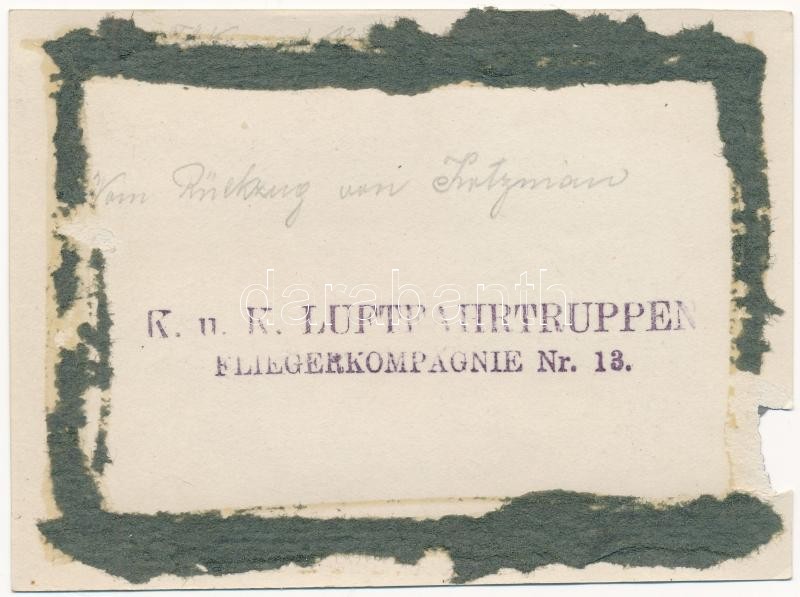 Vom Rückzug von Kotzman
darabanth
K. u. K. LUFTFAHRTRUPPEN
FLIEGERKOMPAGNIE Nr. 13.